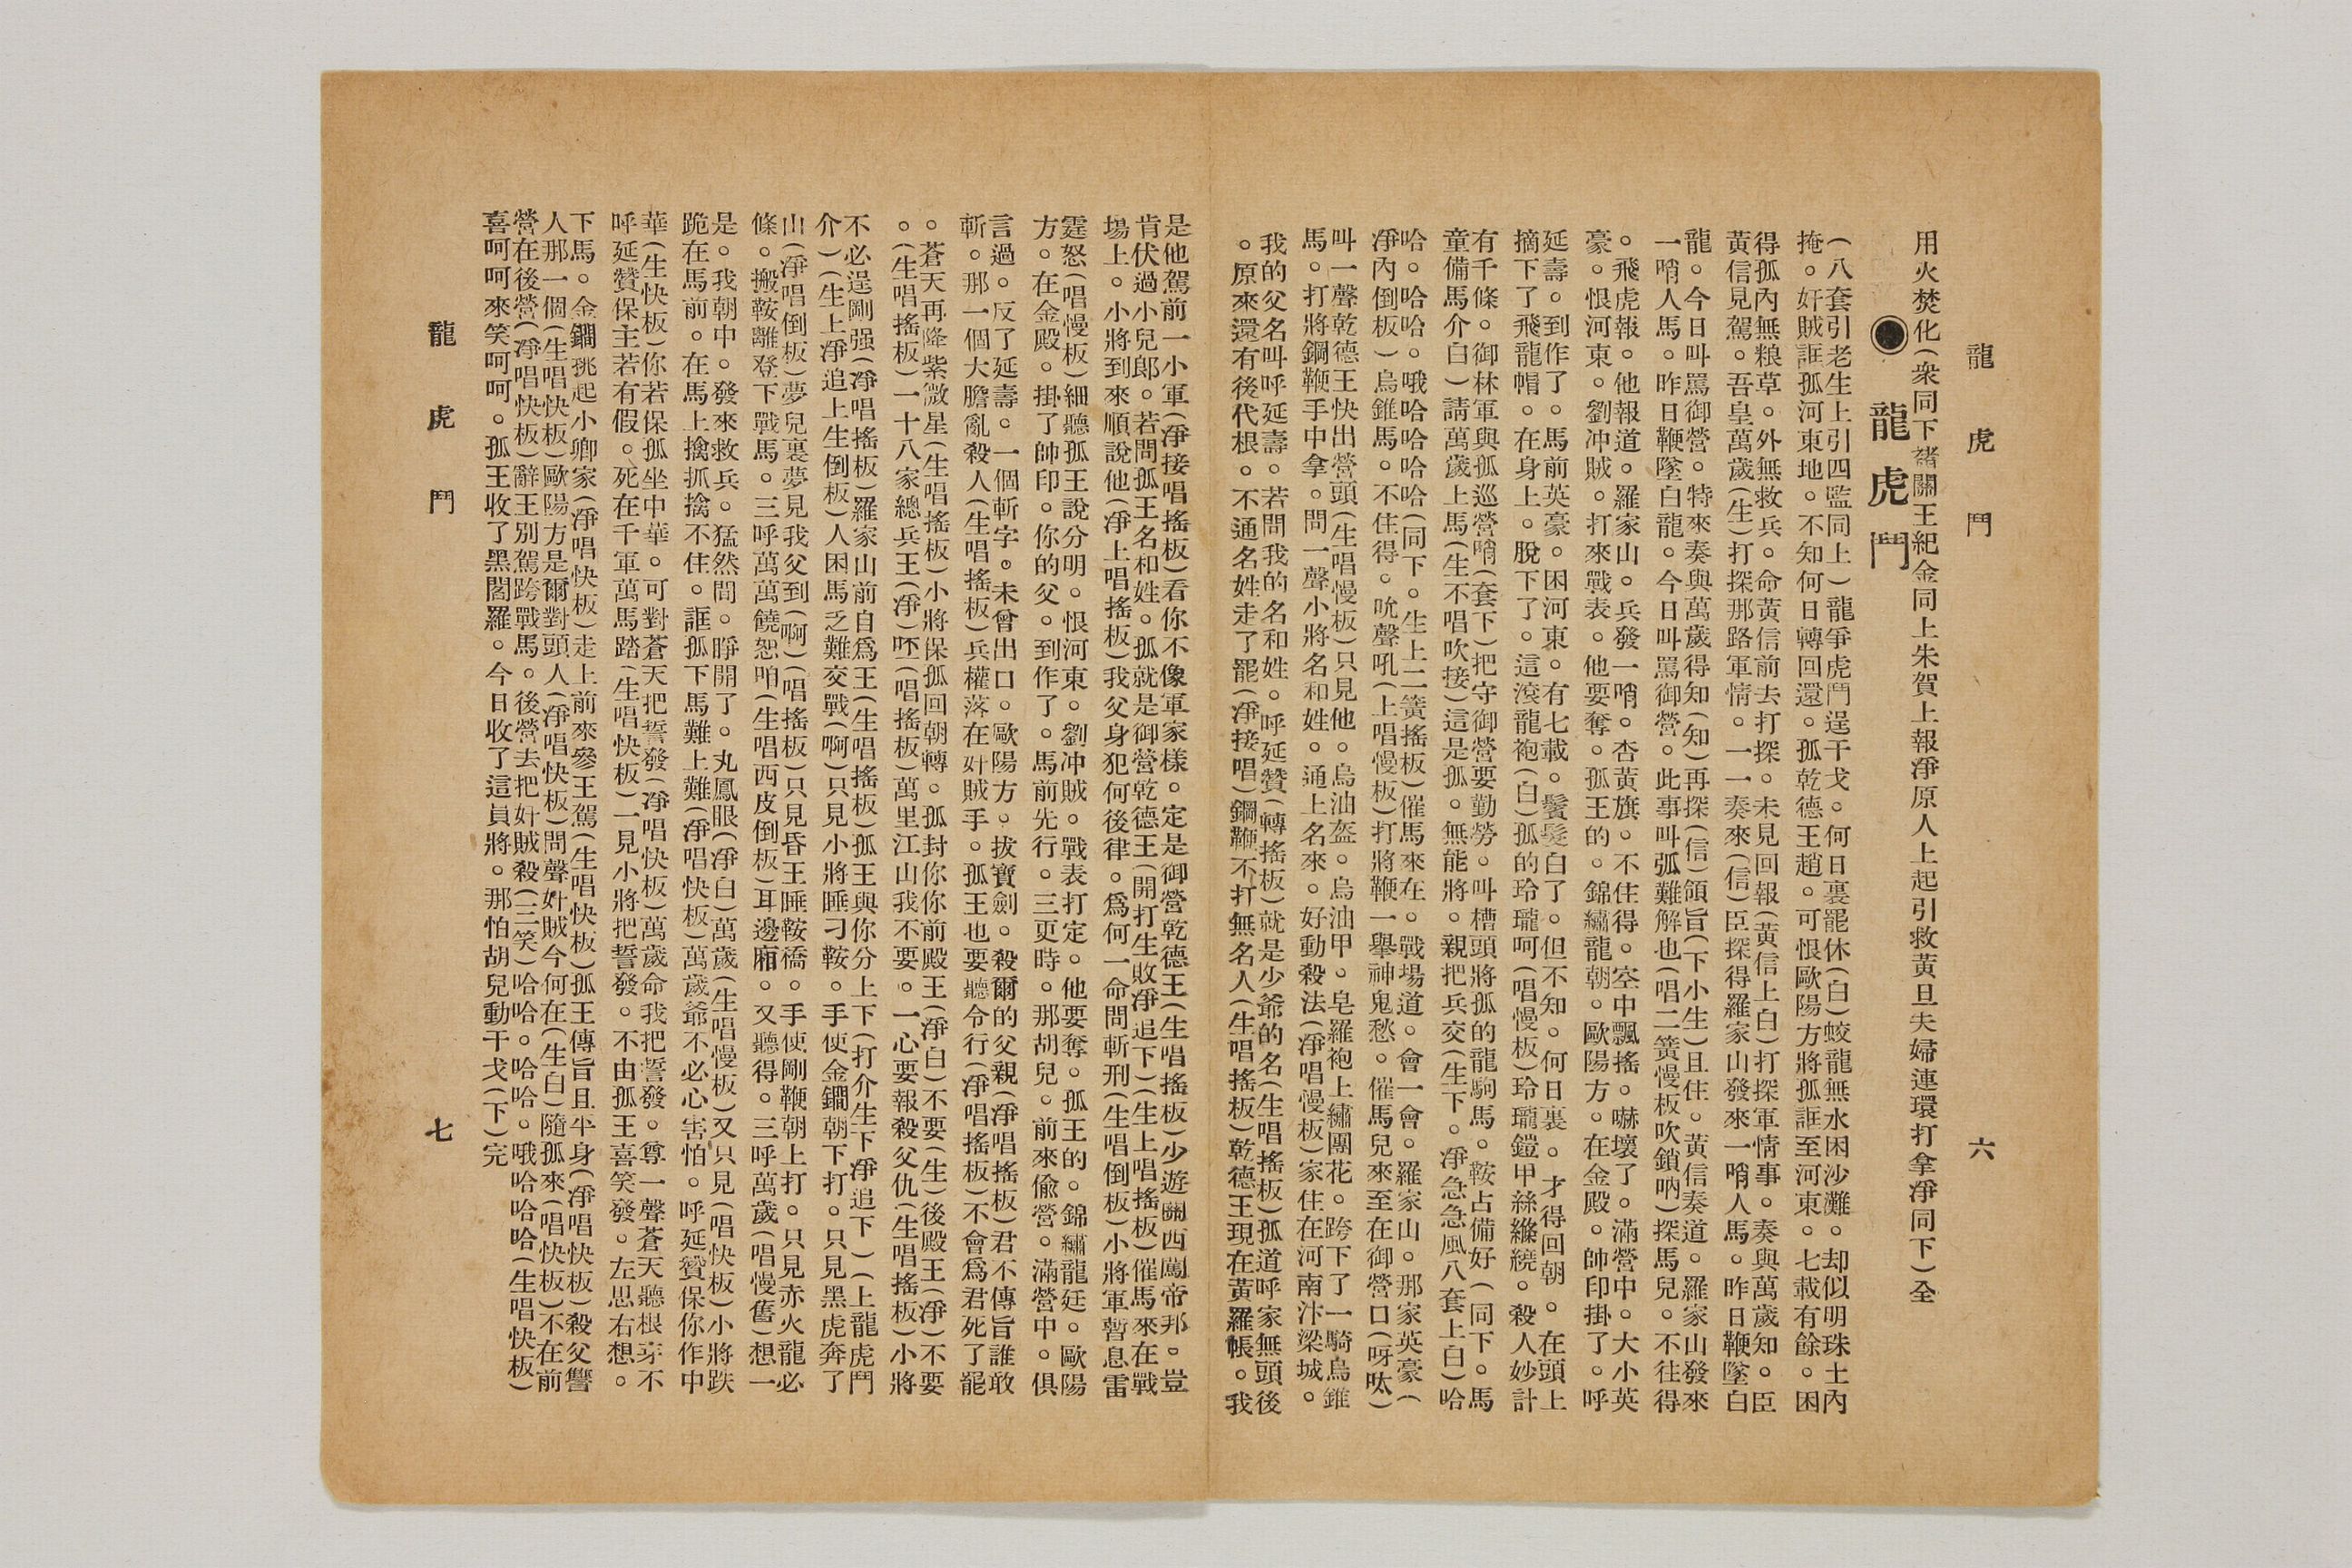 龍虎鬥　六
用火焚化(衆同下褚關王紀金同上朱賀上報淨原人上起引救黃旦夫婦連環打拿淨同下)全
●龍虎鬥
(八套引老生上引四監同上)龍爭虎鬥逞干戈。何日裏罷休(白)蛟龍無水困沙灘。却似明珠土內
掩。奸賊誆孤河東地。不知何日轉回還。孤乾德王趙。可恨歐陽方將孤誆至河東。七載有餘。困
得孤內無粮草。外無救兵。命黃信前去打探。未見回報(黃信上白)打探軍情事。奏與萬歲知。臣
黃信見駕。吾皇萬歲(生)打探那路軍情。一一奏來(信)臣探得羅家山發來一哨人馬。昨日鞭墜白
龍。今日叫罵御營。特來奏與萬歲得知(知)再探(信)領旨(下小生)且住。黃信奏道。羅家山發來
一哨人馬。昨日鞭墜白龍。今日叫罵御營。此事叫弧難解也(唱二簧慢板吹鎖吶)探馬兒。不往得
。飛虎報。他報道。羅家山。兵發一哨。杏黃旗。不住得。空中飄搖。嚇壞了。滿營中。大小英
豪。恨河東。劉冲賊。打來戰表。他要奪。孤王的。錦繡龍朝。歐陽方。在金殿。帥印掛了。呼
延壽。到作了。馬前英豪。困河東。有七載。鬢髮白了。但不知。何日裏。才得回朝。在頭上
摘下了飛龍帽。在身上。脫下了。這滾龍袍(白)孤的玲瓏呵(唱慢板)玲瓏鎧甲絲縧繞。殺人妙計
有千條。御林軍與孤巡營哨(套下)把守御營要勤勞。叫槽頭將孤的龍駒馬。鞍占備好(同下。馬
童備馬介白)請萬歲上馬(生不唱吹接)這是孤。無能將。親把兵交(生下。淨急急風八套上白)哈
哈。哈哈。哦哈哈哈哈(同下。生上二簧搖板)催馬來在。戰場道。會一會。羅家山。那家英豪(
淨內倒板)烏錐馬。不住得。吮聲吼(上唱慢板)打將鞭一舉神鬼愁。催馬兒來至在御營口(呀呔)
叫一聲乾德王快出營頭(生唱慢板)只見他。烏油盔。烏油甲。皂羅袍上繡團花。跨下了一騎烏錐
馬。打將鋼鞭手中拿。問一聲小將名和姓。通上名來。好動殺法(淨唱慢板)家住在河南汴梁城。
我的父名叫呼延壽。若問我的名和姓。呼延贊(轉搖板)就是少爺的名(生唱搖板)孤道呼家無頭後
。原來還有後代根。不通名姓走了罷(淨接唱)鋼鞭不打無名人(生唱搖板)乾德王現在黃羅帳。我
是他駕前一小軍(淨接唱搖板)看你不像軍家樣。定是御營乾德王(生唱搖板)少遊關西闖帝邦。豈
肯伏過小兒郎。若問孤王名和姓。孤就是御營乾德王(開打生敗淨追下)(生上唱搖板)催馬來在戰
場上。小將到來順說他(淨上唱搖板)我父身犯何後律。爲何一命問斬刑(生唱倒板)小將軍暫息雷
霆怒(唱慢板)細聽孤王說分明。恨河東。劉冲賊。戰表打定。他要奪。孤王的。錦繡龍廷。歐陽
方。在金殿。掛了帥印。你的父。到作了。馬前先行。三更時。那胡兒。前來偸營。滿營中。俱
言過。反了延壽。一個斬字。未曾出口。歐陽方。拔寶劍。殺爾的父親(淨唱搖板)君不傳旨誰敢
斬。那一個大膽亂殺人(生唱搖板)兵權落在奸賊手。孤王也要聽令行(淨唱搖板)不會爲君死了罷
。蒼天再降紫微星(生唱搖板)小將保孤回朝轉。孤封你你前殿王(淨白)不要(生)後殿王(淨)不要
。(生唱搖板)一十八家總兵王(淨)呸(唱搖板)萬里江山我不要。一心要報殺父仇(生唱搖板)小將
不必逞剛强(淨唱搖板)羅家山前自爲王(生唱搖板)孤王與你分上下(打介生下淨追下)(上龍虎鬥
介)(生上淨追上生倒板)人困馬乏難交戰(啊)只見小將睡刁鞍。手使金鐧朝下打。只見黑虎奔了
山(淨唱倒板)夢兒裏夢見我父到(啊)(唱搖板)只見昏王睡鞍橋。手使剛鞭朝上打。只見赤火龍必
條。搬鞍離登下戰馬。三呼萬萬饒恕咱(生唱西皮倒板)耳邊廂。又聽得。三呼萬歲(唱慢舊)想一
是。我朝中。發來救兵。猛然間。睜開了。丸鳳眼(淨白)萬歲(生唱慢板)又只見(唱快板)小將跌
跪在馬前。在馬上擒抓擒不住。誆孤下馬難上難(淨唱快板)萬歲爺不必心害怕。呼延贊保你作中
華(生快板)你若保孤坐中華。可對蒼天把誓發(淨唱快板)萬歲命我把誓發。尊一聲蒼天聽根芽不
呼延贊保主若有假。死在千軍萬馬踏(生唱快板)一見小將把誓發。不由孤王喜笑發。左思右想。
下馬。金鐧挑起小卿家(淨唱快板)走上前來參王駕(生唱快板)孤王傳旨且平身(淨唱快板)殺父讐
人那一個(生唱快板)歐陽方是爾對頭人(淨唱快板)問聲奸賊今何在(生白)隨孤來(唱快板)不在前
營在後營(淨唱快板)辭王別駕跨戰馬。後營去把奸賊殺(三笑)哈哈。哈哈。哦哈哈哈(生唱快板)
喜呵呵來笑呵呵。孤王收了黑閻羅。今日收了這員將。那怕胡兒動干戈(下)完
龍虎鬥　七